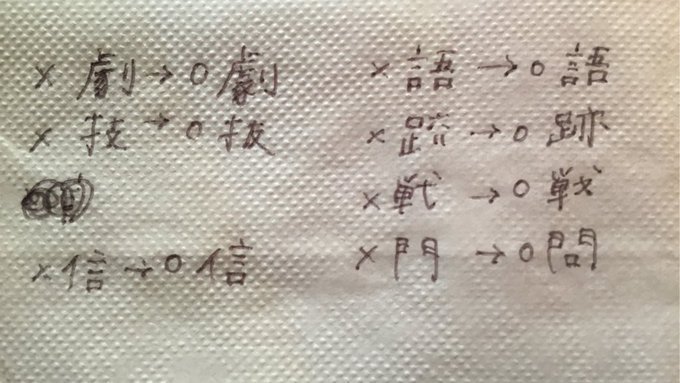 × 劇→○劇
× 技→○抜
× 信→○信
× 語→○語
× 跡→○跡
× 戦→○戦
× 門→○問